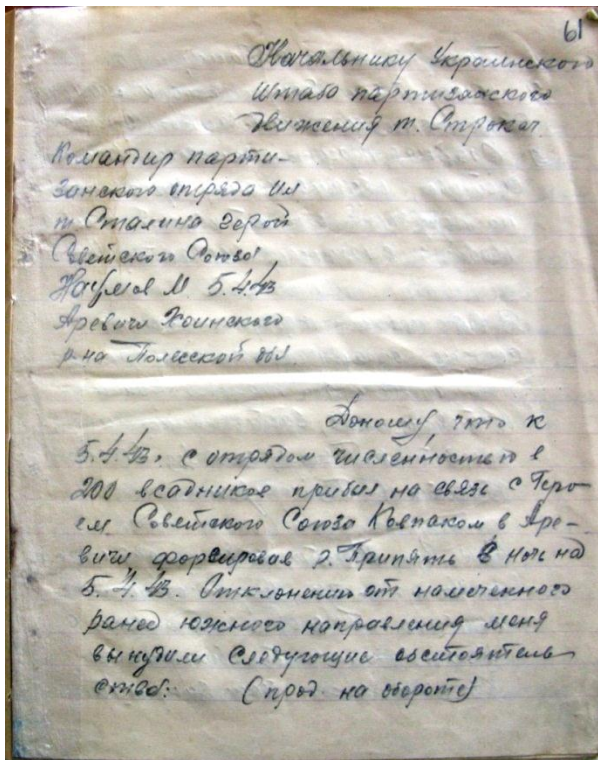 61
Начальнику Украинского
штаба партизанского
движения т. Строкач
Командир парти-
занского отряда им
т Сталина герой
Советского Союза
Наумов М. 5.4.43
Аревичи Хоинского
р-на Полесской обл.
Доношу что к
5.4.43. с отрядом численностью в
200 всадников прибыл на связь с Геро-
ем Советского Союза Ковпаком в Аре-
вичи форсировав р. Припять в ночь на
5.4.43. Отклонение от намеченного
ранее южного направления меня
вынудили следующие обстоятель
ства: (прод. на обороте)